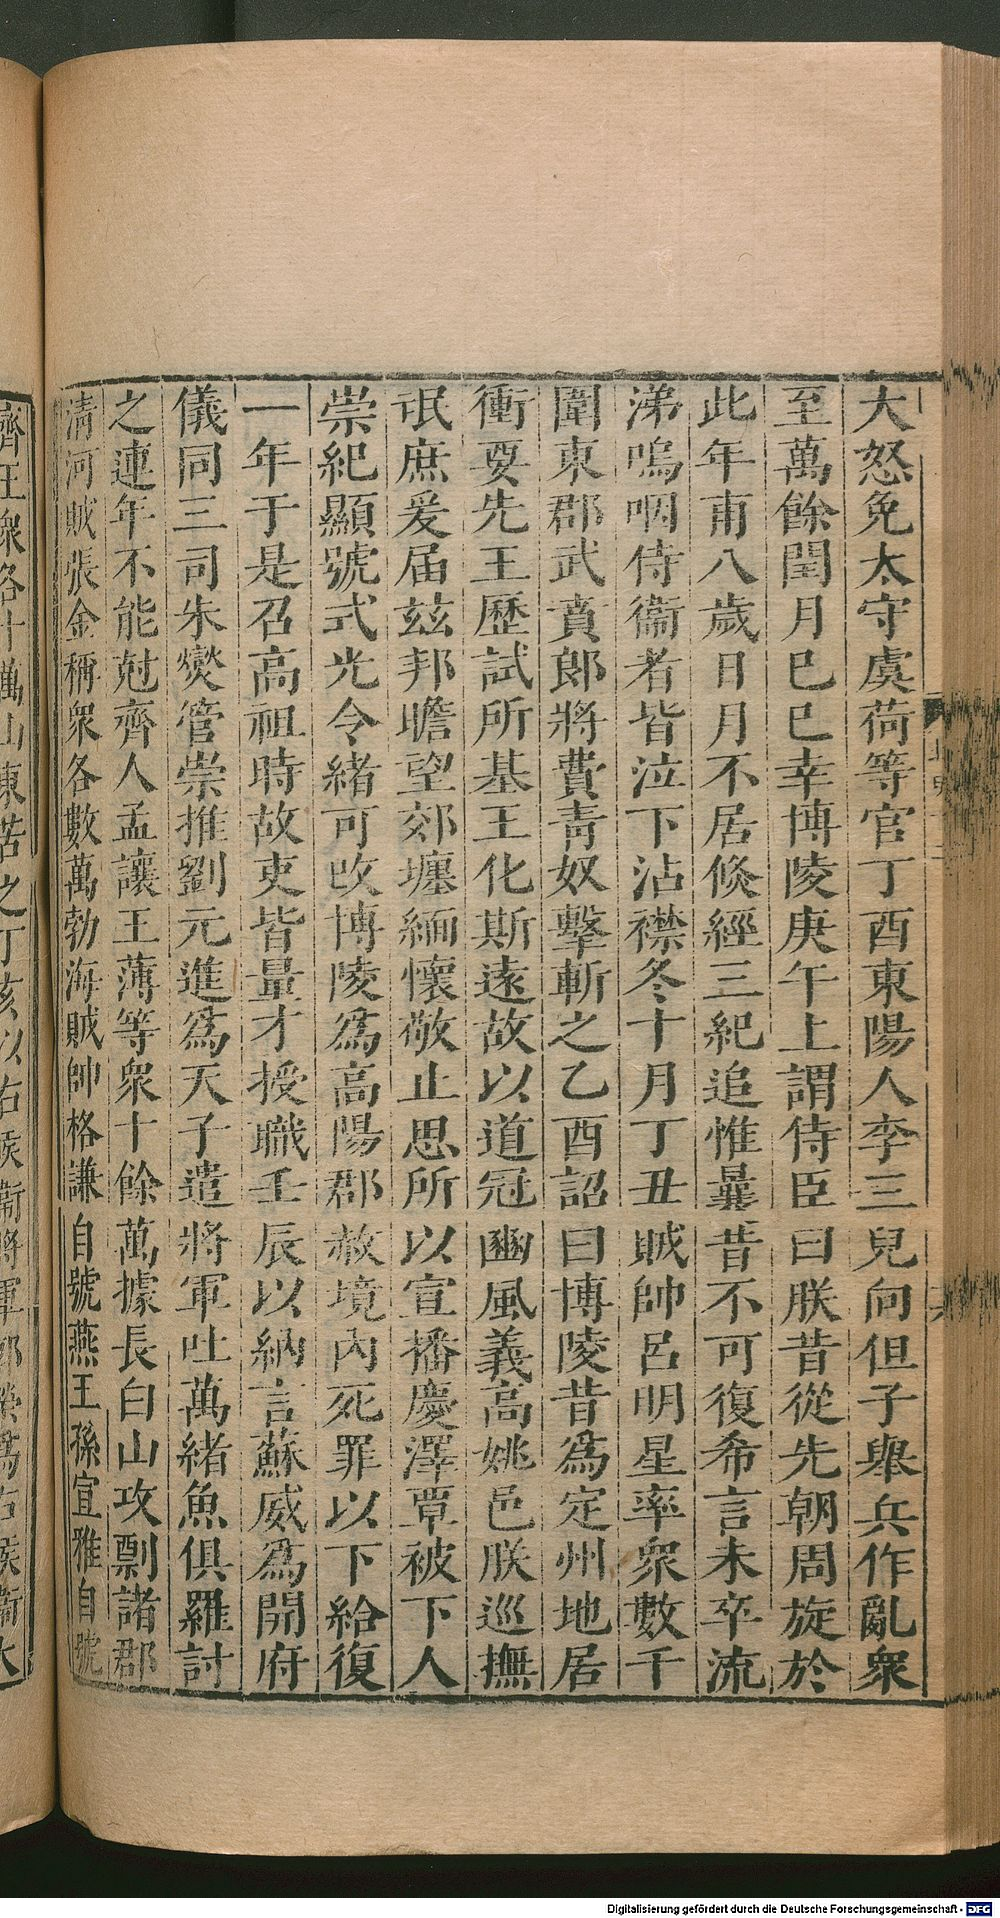 大怒免太守虞荷等官丁酉東陽人李三兒向但子舉兵作亂衆
至萬餘閏月巳巳幸博陵庚午上謂侍臣曰朕昔從先朝周旋於
此年甫八歲日月不居倐經三紀追惟曩昔不可復希言未卒流
涕嗚咽侍衞者皆泣下沾襟冬十月丁丑賊帥呂明星率衆數千
圍東郡武賁郎將費靑奴擊斬之乙酉詔曰博陵昔爲定州地居
衝要先王歷試所基王化斯遠故以道冠豳風義高姚邑朕巡撫
氓庶爰屆兹邦瞻望郊壥緬懷敬止思所以宣播慶澤覃被下人
崇紀顯號式光令緒可改博陵爲高陽郡赦境內死罪以下給復
一年于是召高祖時故吏皆量才授職壬辰以納言蘇威爲開府
儀同三司朱燮管崇推劉元進爲天子遣將軍吐萬緒魚俱羅討
之連年不能尅齊人孟讓王薄等衆十餘萬據長白山攻剽諸郡
淸河賊張金稱衆各數萬勃海賊帥格謙自號燕王孫宣雅自號
齊王衆各十萬山東苦之丁亥以右候衞將軍郭榮爲右候衞大
Digitalisierung gefördert durch die Deutsche Forschungsgemeinschaft - DFG